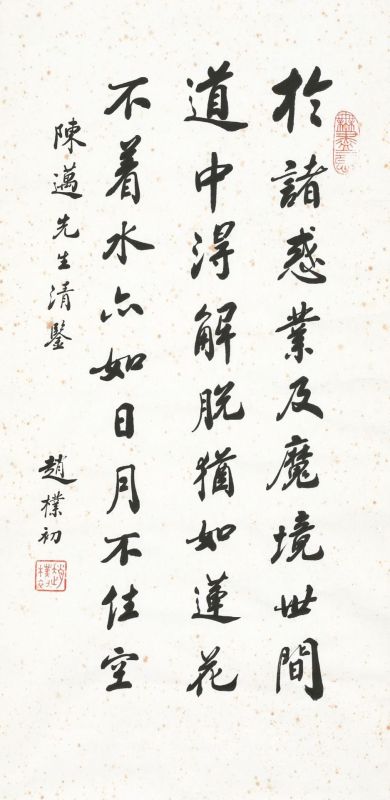 於諸惑業及魔境世間
道中得解脱猶如蓮花
不着水亦如日月不住空
陳邁先生清鑒
趙樸初